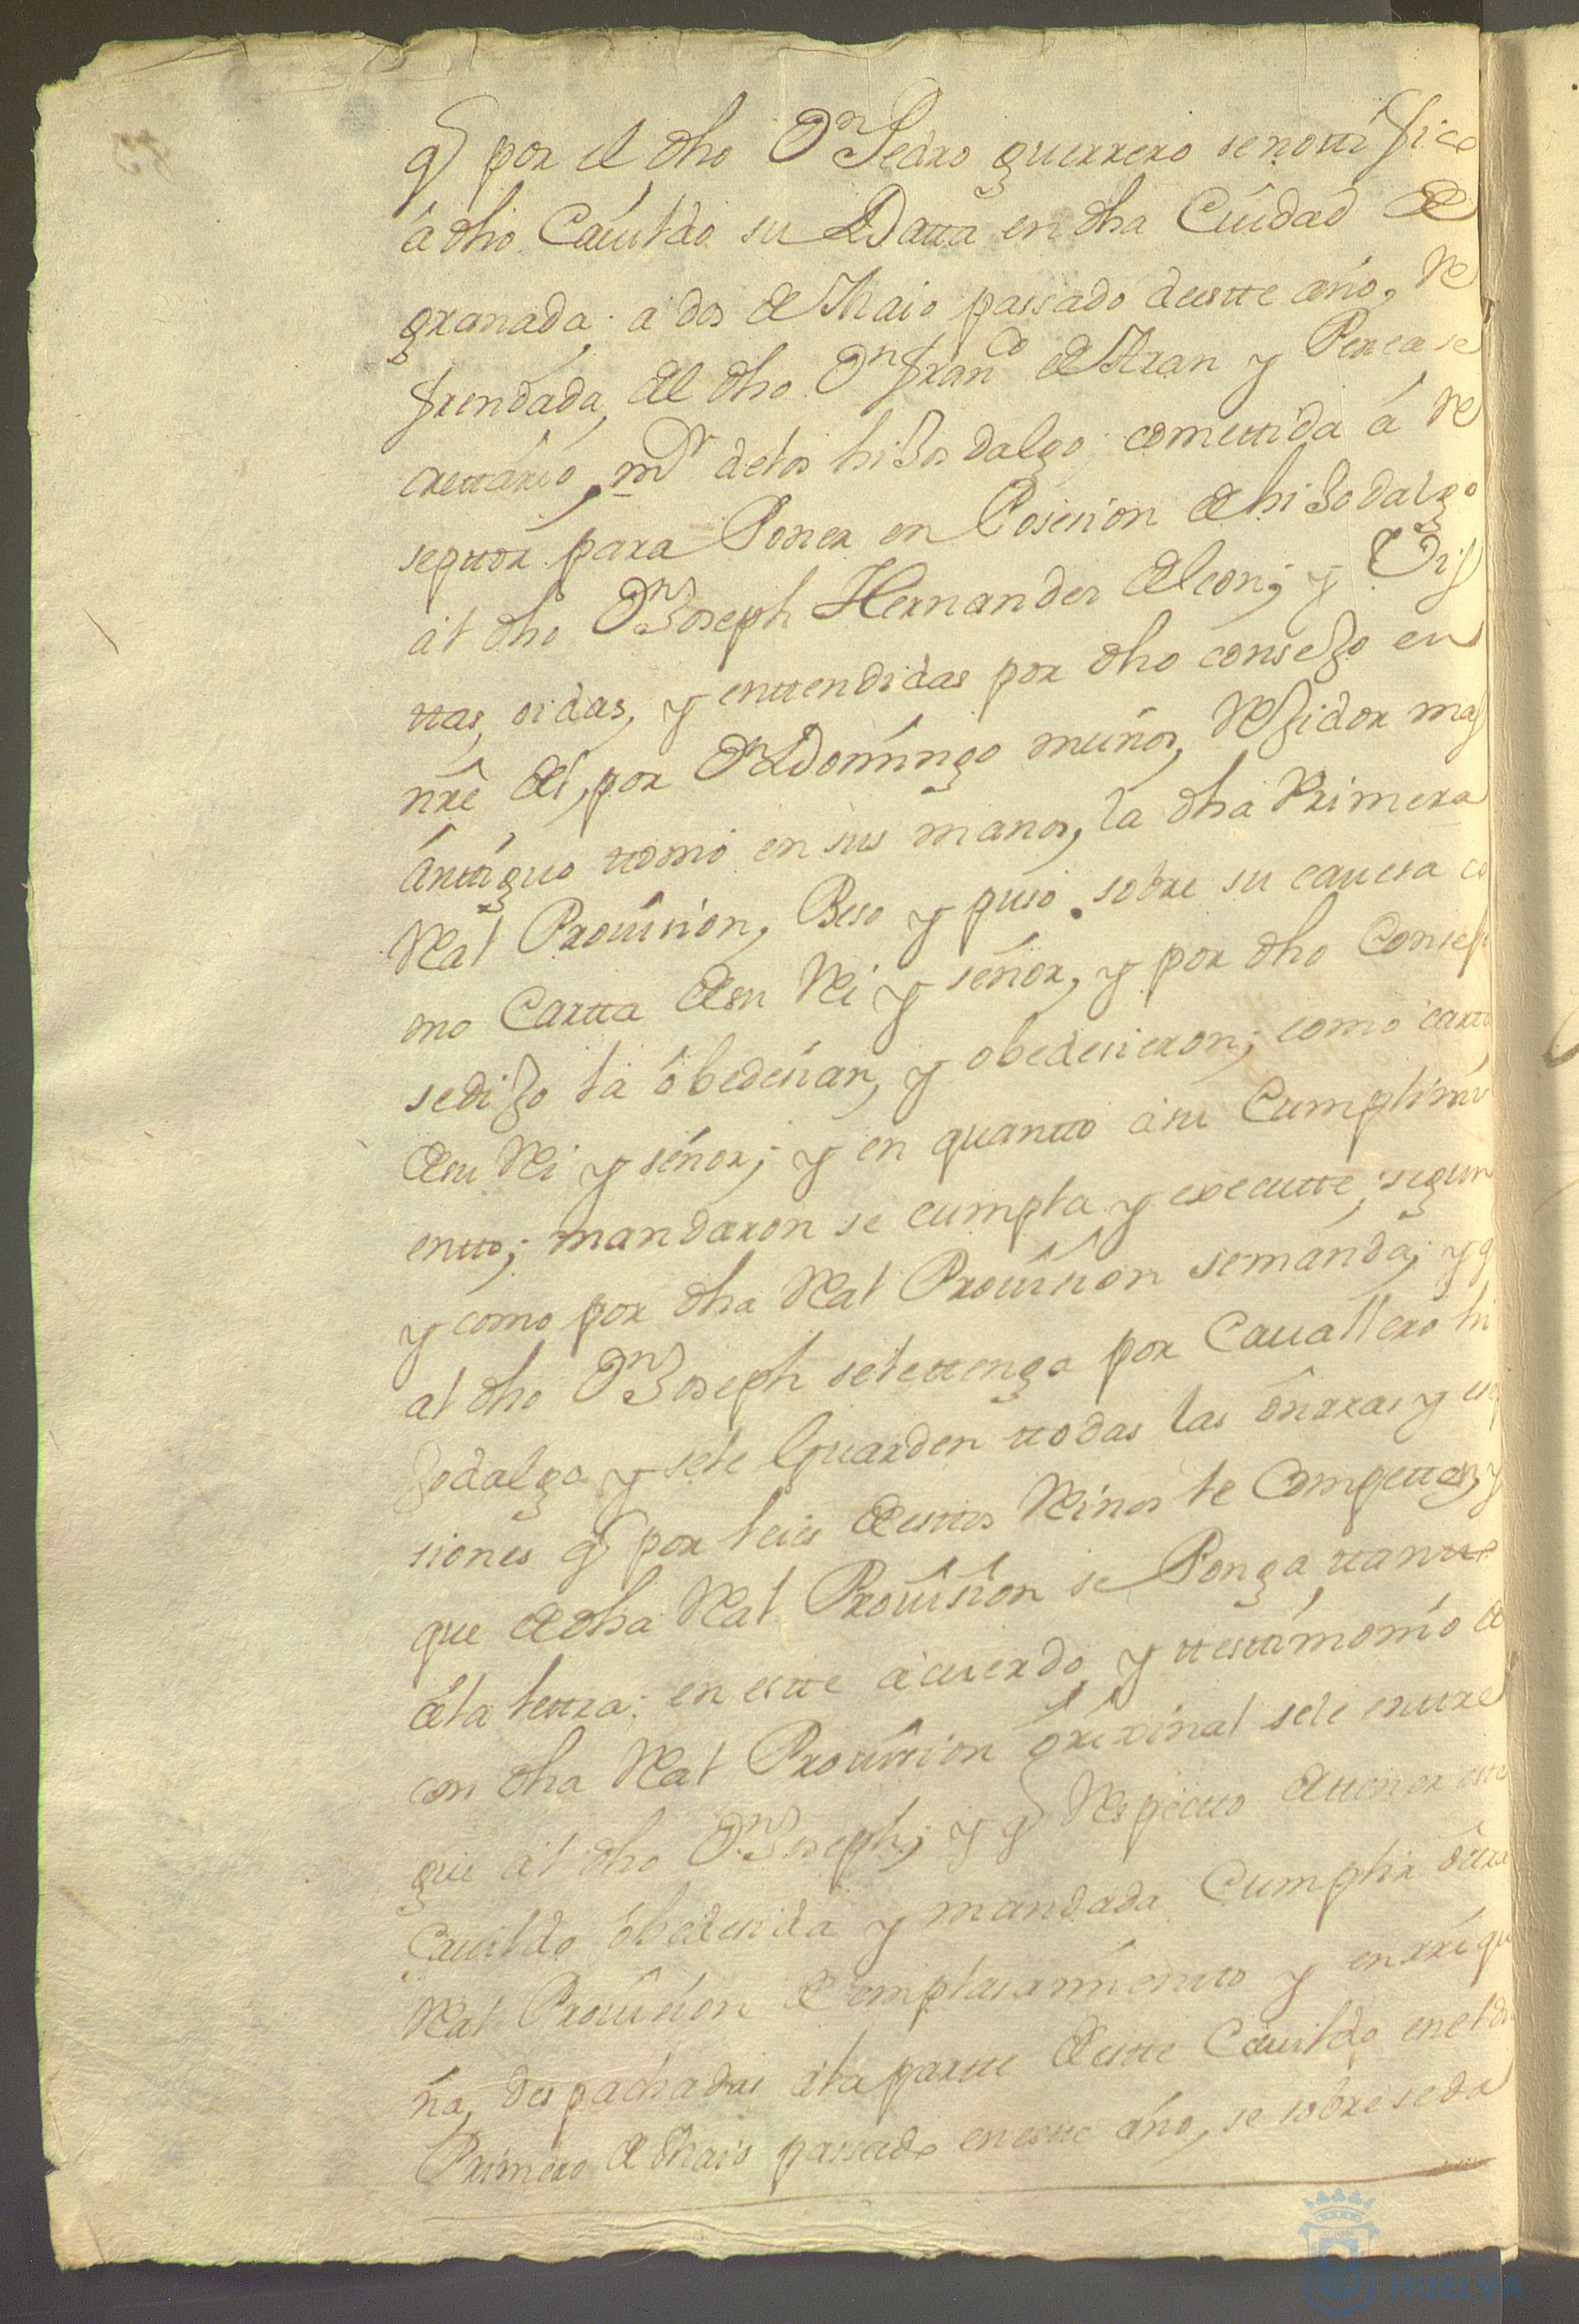 q̃ por el dho Dn Pedro guerrero se nottifice
â dho Cauildo su Datta en dha Ciudad de
granada, a dos de Maio passado deeste año, Re
frendada, del dho Dn franco de Aran y Perea se
crettario, mr delos hijos dalgo, comettida â Re
septtor para Poner en Posesion de hijodalgo
al dho Dn Joseph Hernandes de leon; y Vis
ttas, oidas, y enttendidas por dho consejo en
ttre si, por Dn Domingo muños, Rejidor mas
Anttiguo ttomo en sus manos, la dha Primera
Real Prouision, Beso y puso sobre su cauesa co
mo Cartta de su Rei y señor, y por dho Consejo
se dijo la obedesian, y obedesieron; como cartta
de su Rei y señor; y en quantto a su Cumplimi
entto; mandaron se cumpla y executte, segun
y como por dha Real Prouision se manda; y q̃
al dho Dn Joseph se le ttenga por Cauallero hi
jodalgo y se le Guarden ttodas las onrras y esẽp
siones q̃ por leies de esttos Reinos le Competten, y
que de dha Real Prouision se Ponga, ttantto
a la lettra, en estte acuerdo, y ttesttimonio de el
con dha Real Prouision orixinal se le enttre
gue al dho Dn Joseph; y q̃ Respectto de ttener estte
Cauildo obedesida y mandada Cumplir ottra
Real Prouision de emplasamientto y en rrique
ña, despachadas a la partte de estte Cauildo en el dia
Primero de Maio passado en estte año, se sobreseda
HUELVA